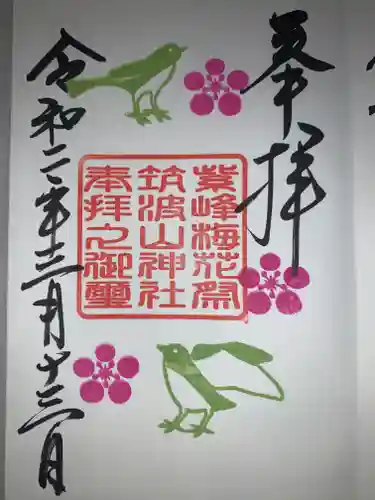 奉拝
紫峰梅花祭
筑波山神社
奉拝之御璽
令和二年三月十三日